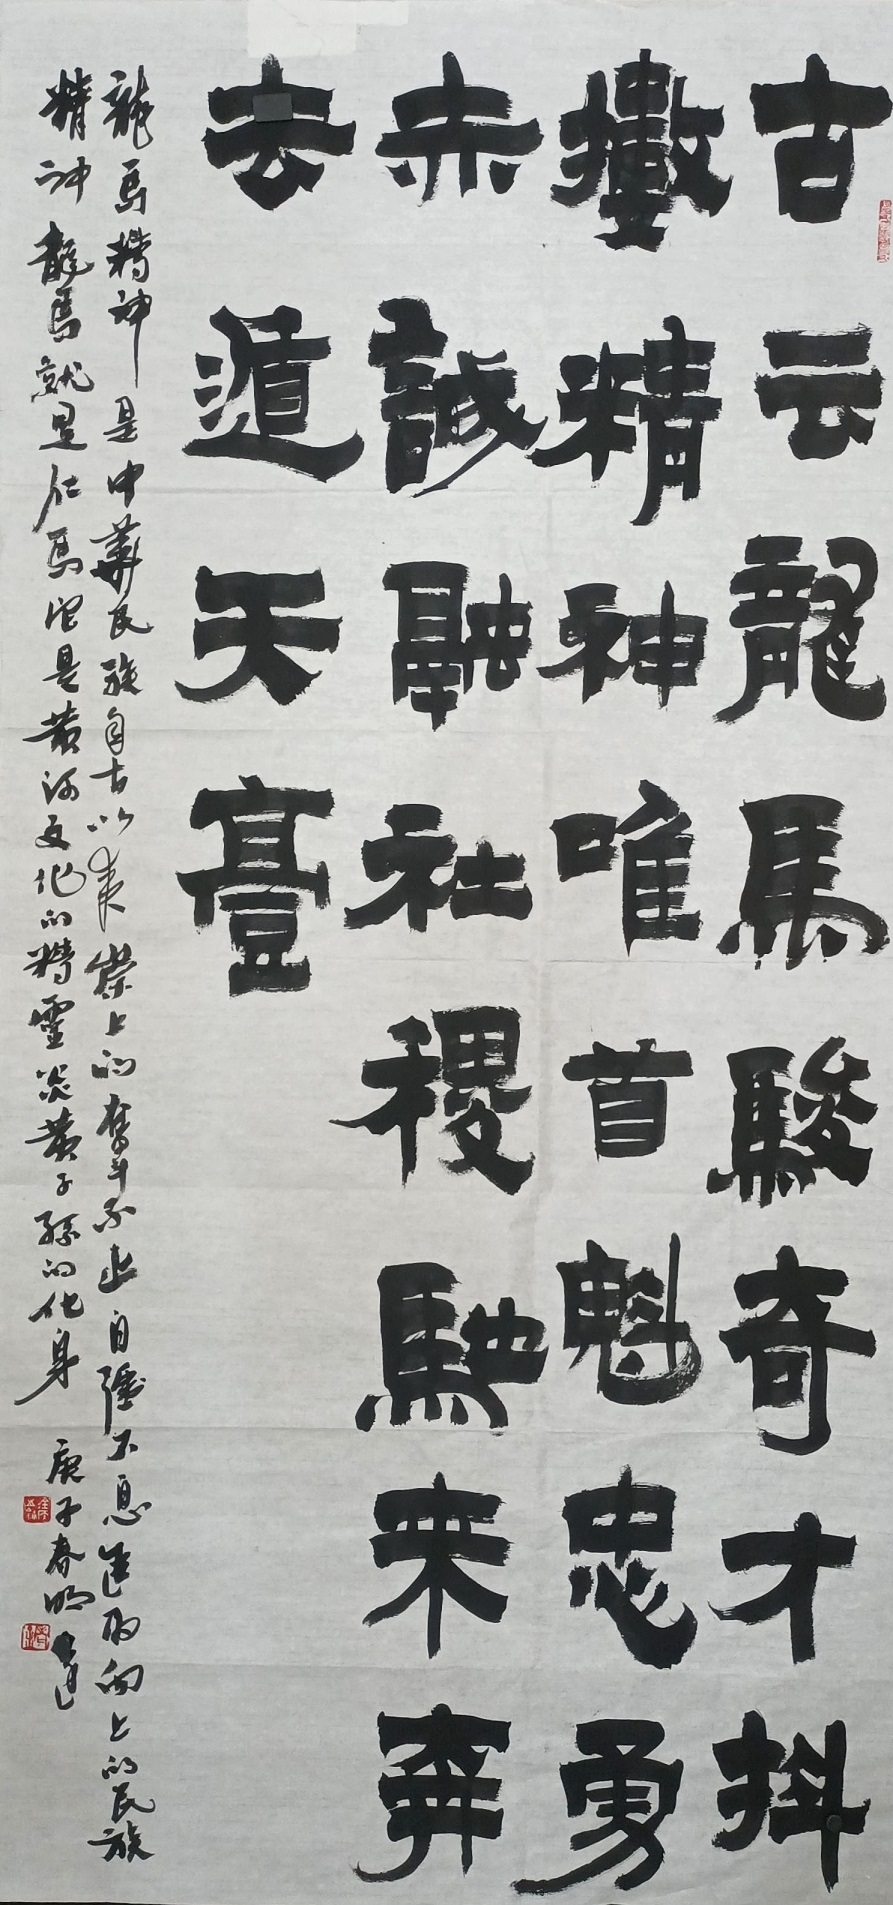 古云龍馬駿奇才抖
擻精神唯首魁忠勇
赤誠融社稷馳来奔
去遁天臺
龍馬精神是中華民族自古以来崇上的奮斗不止自强不息進取向上的民族
精神龍馬就是仁馬它是黄河文化的精靈炎黄子孫的化身
庚子春明道